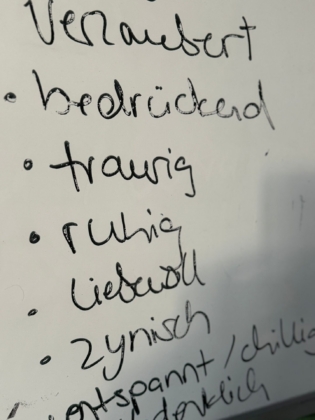 Verzaubert
• bedrückend
• traurig
• ruhig
• liebevoll
• zynisch
• entspannt / chillig